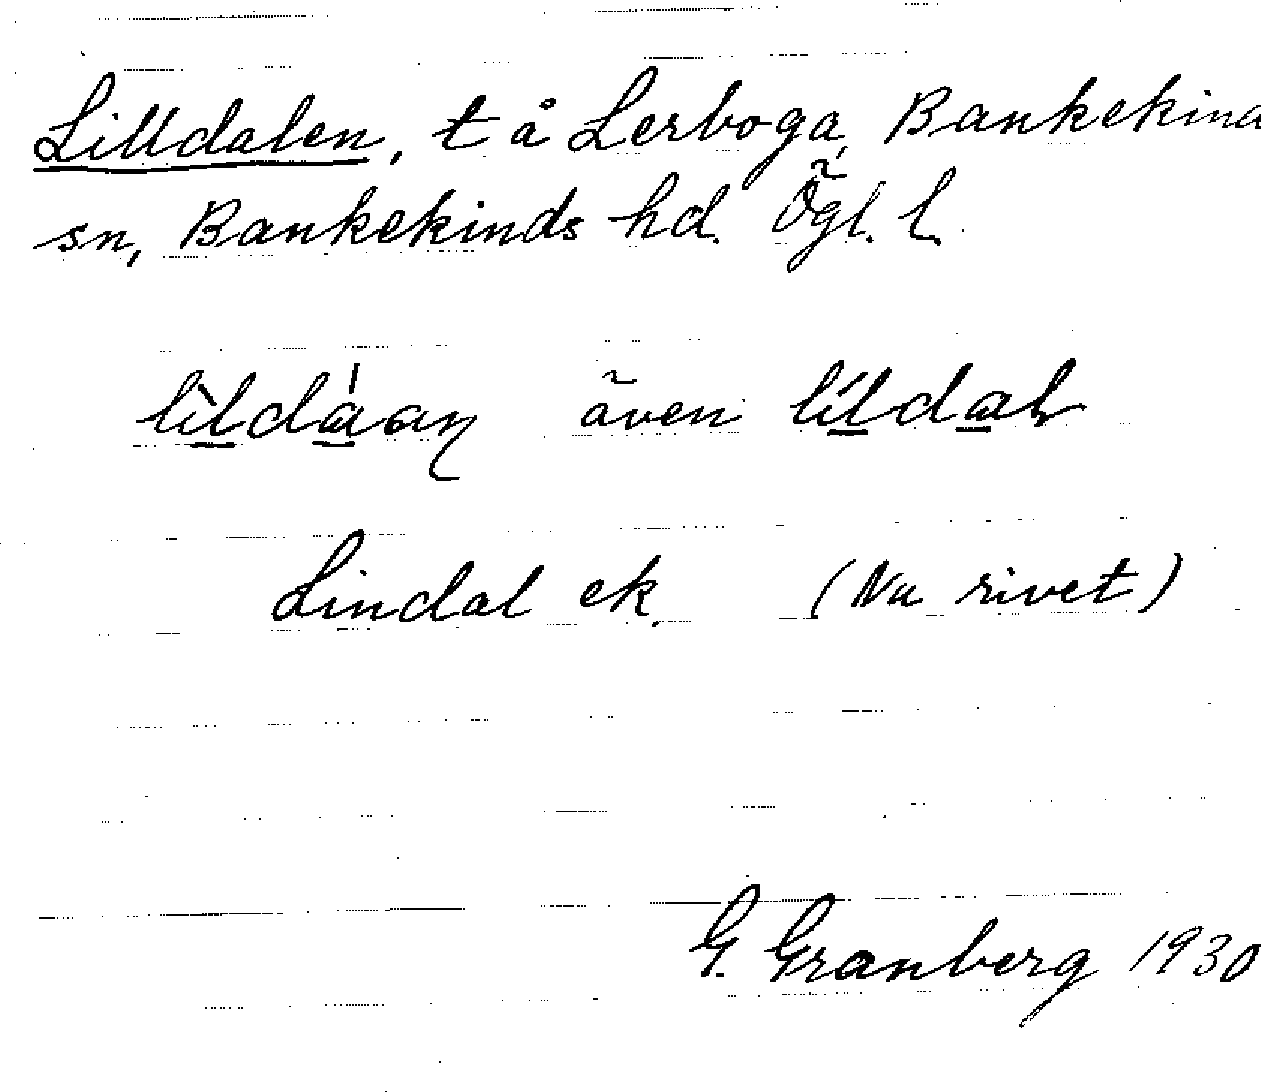 Lilldalen, t å Lerboga, Bankekind
sn, Bankekinds hd. Ögl. l.
även
Lindal ek. (Nu rivet)
G. Granberg 1930